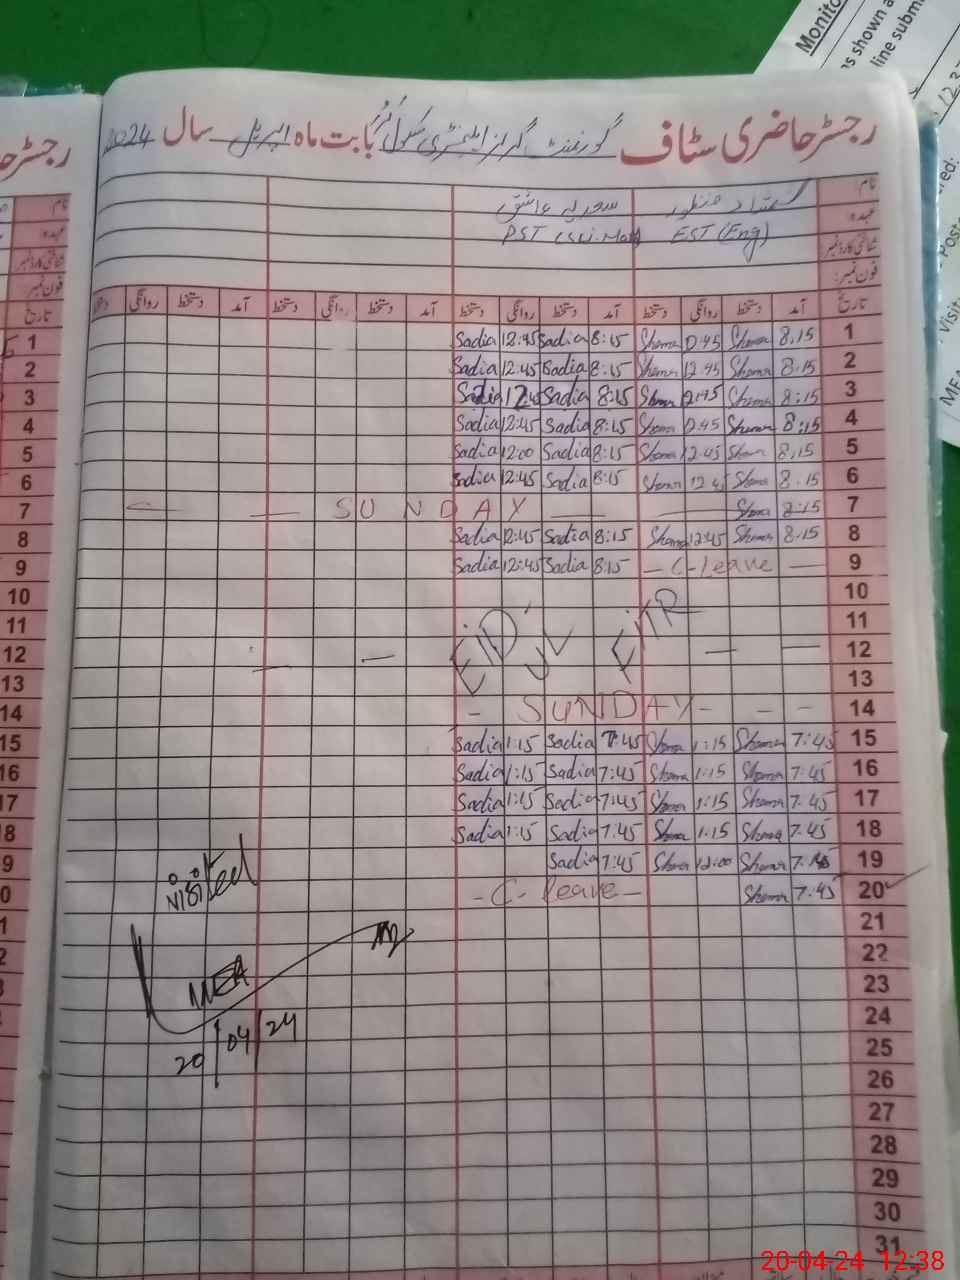 رجسٹر حاضری سٹاف گورنمنٹ گرلز ایلیمنٹری سکول بابت ماہ اپریل سال 2024
نام
عہدہ EST (Eng) PST
شناختی کارڈ نمبر
فون نمبر:
تاریخ آمد دستخط روانگی دستخط آمد دستخط روانگی دستخط آمد دستخط روانگی دستخط آمد دستخط روانگی
1 8.15 Shama 12.45 Shama 8:15 Sadia 12:45 Sadia
2 8.15 Shama 12.45 Shama 8:15 Sadia 12:45 Sadia
3 8:15 Shama 12:45 Shama 8:15 Sadia 12:45 Sadia
4 8:15 Shama 12.45 Shama 8:15 Sadia 12:45 Sadia
5 8.15 Shama 12.45 Shama 8:15 Sadia 12:00 Sadia
6 8.15 Shama 12.45 Shama 8:15 Sadia 12:45 Sadia
7 8:15 Shama SUNDAY
8 8.15 Shama 12:45 Shama 8:15 Sadia 12:45 Sadia
9 C-Leave 8:15 Sadia 12:45 Sadia
10
11
12 EID UL FITR
13
14 SUNDAY
15 7:45 Shama 1:15 Shama 7:45 Sadia 1:15 Sadia
16 7:45 Shama 1:15 Shama 7:45 Sadia 1:15 Sadia
17 7:45 Shama 1:15 Shama 7:45 Sadia 1:15 Sadia
18 7:45 Shama 1:15 Shama 7:45 Sadia 1:15 Sadia
19 7:45 Shama 12:00 Shama 7:45 Sadia
20 7:45 Shama C-leave
21
22
23
24
25
26
27
28
29
30
31
visited
MEA
20/04/24
Monito
s shown a
line subm
20-04-24 12:38